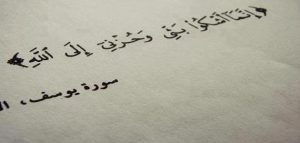 ﴿إِنَّمَا أَشْكُوا بَثِّي وَحُزْنِي إِلَى اللَّهِ﴾
سورة يوسف،